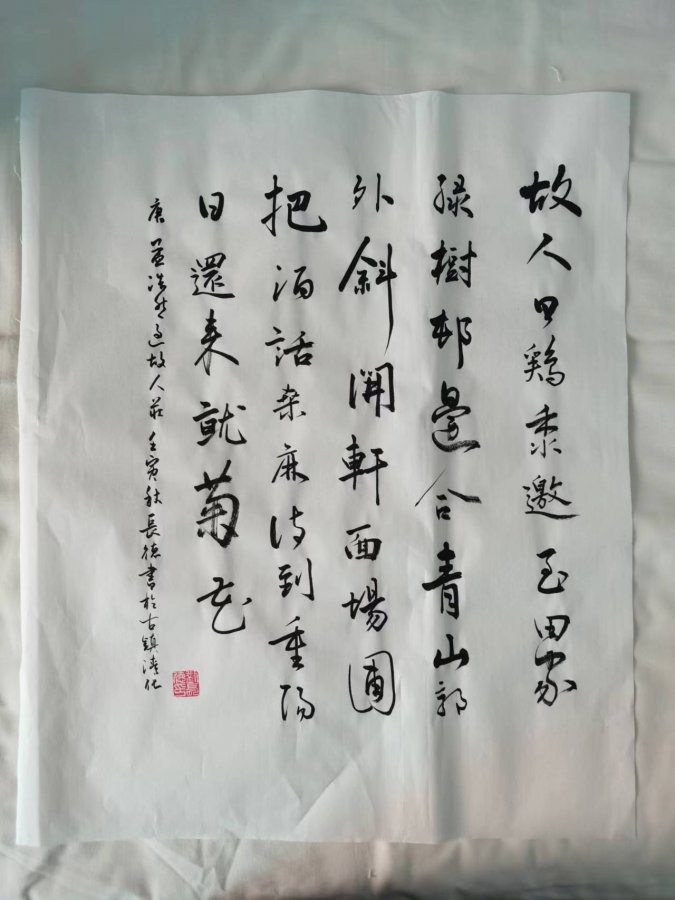 故人具鷄黍邀至田家
綠樹邨邊合青山郭
外斜開軒面場圃
把酒話桑麻待到重陽
日還来就菊花
唐孟浩然過故人莊壬寅秋長德書於古鎮清化